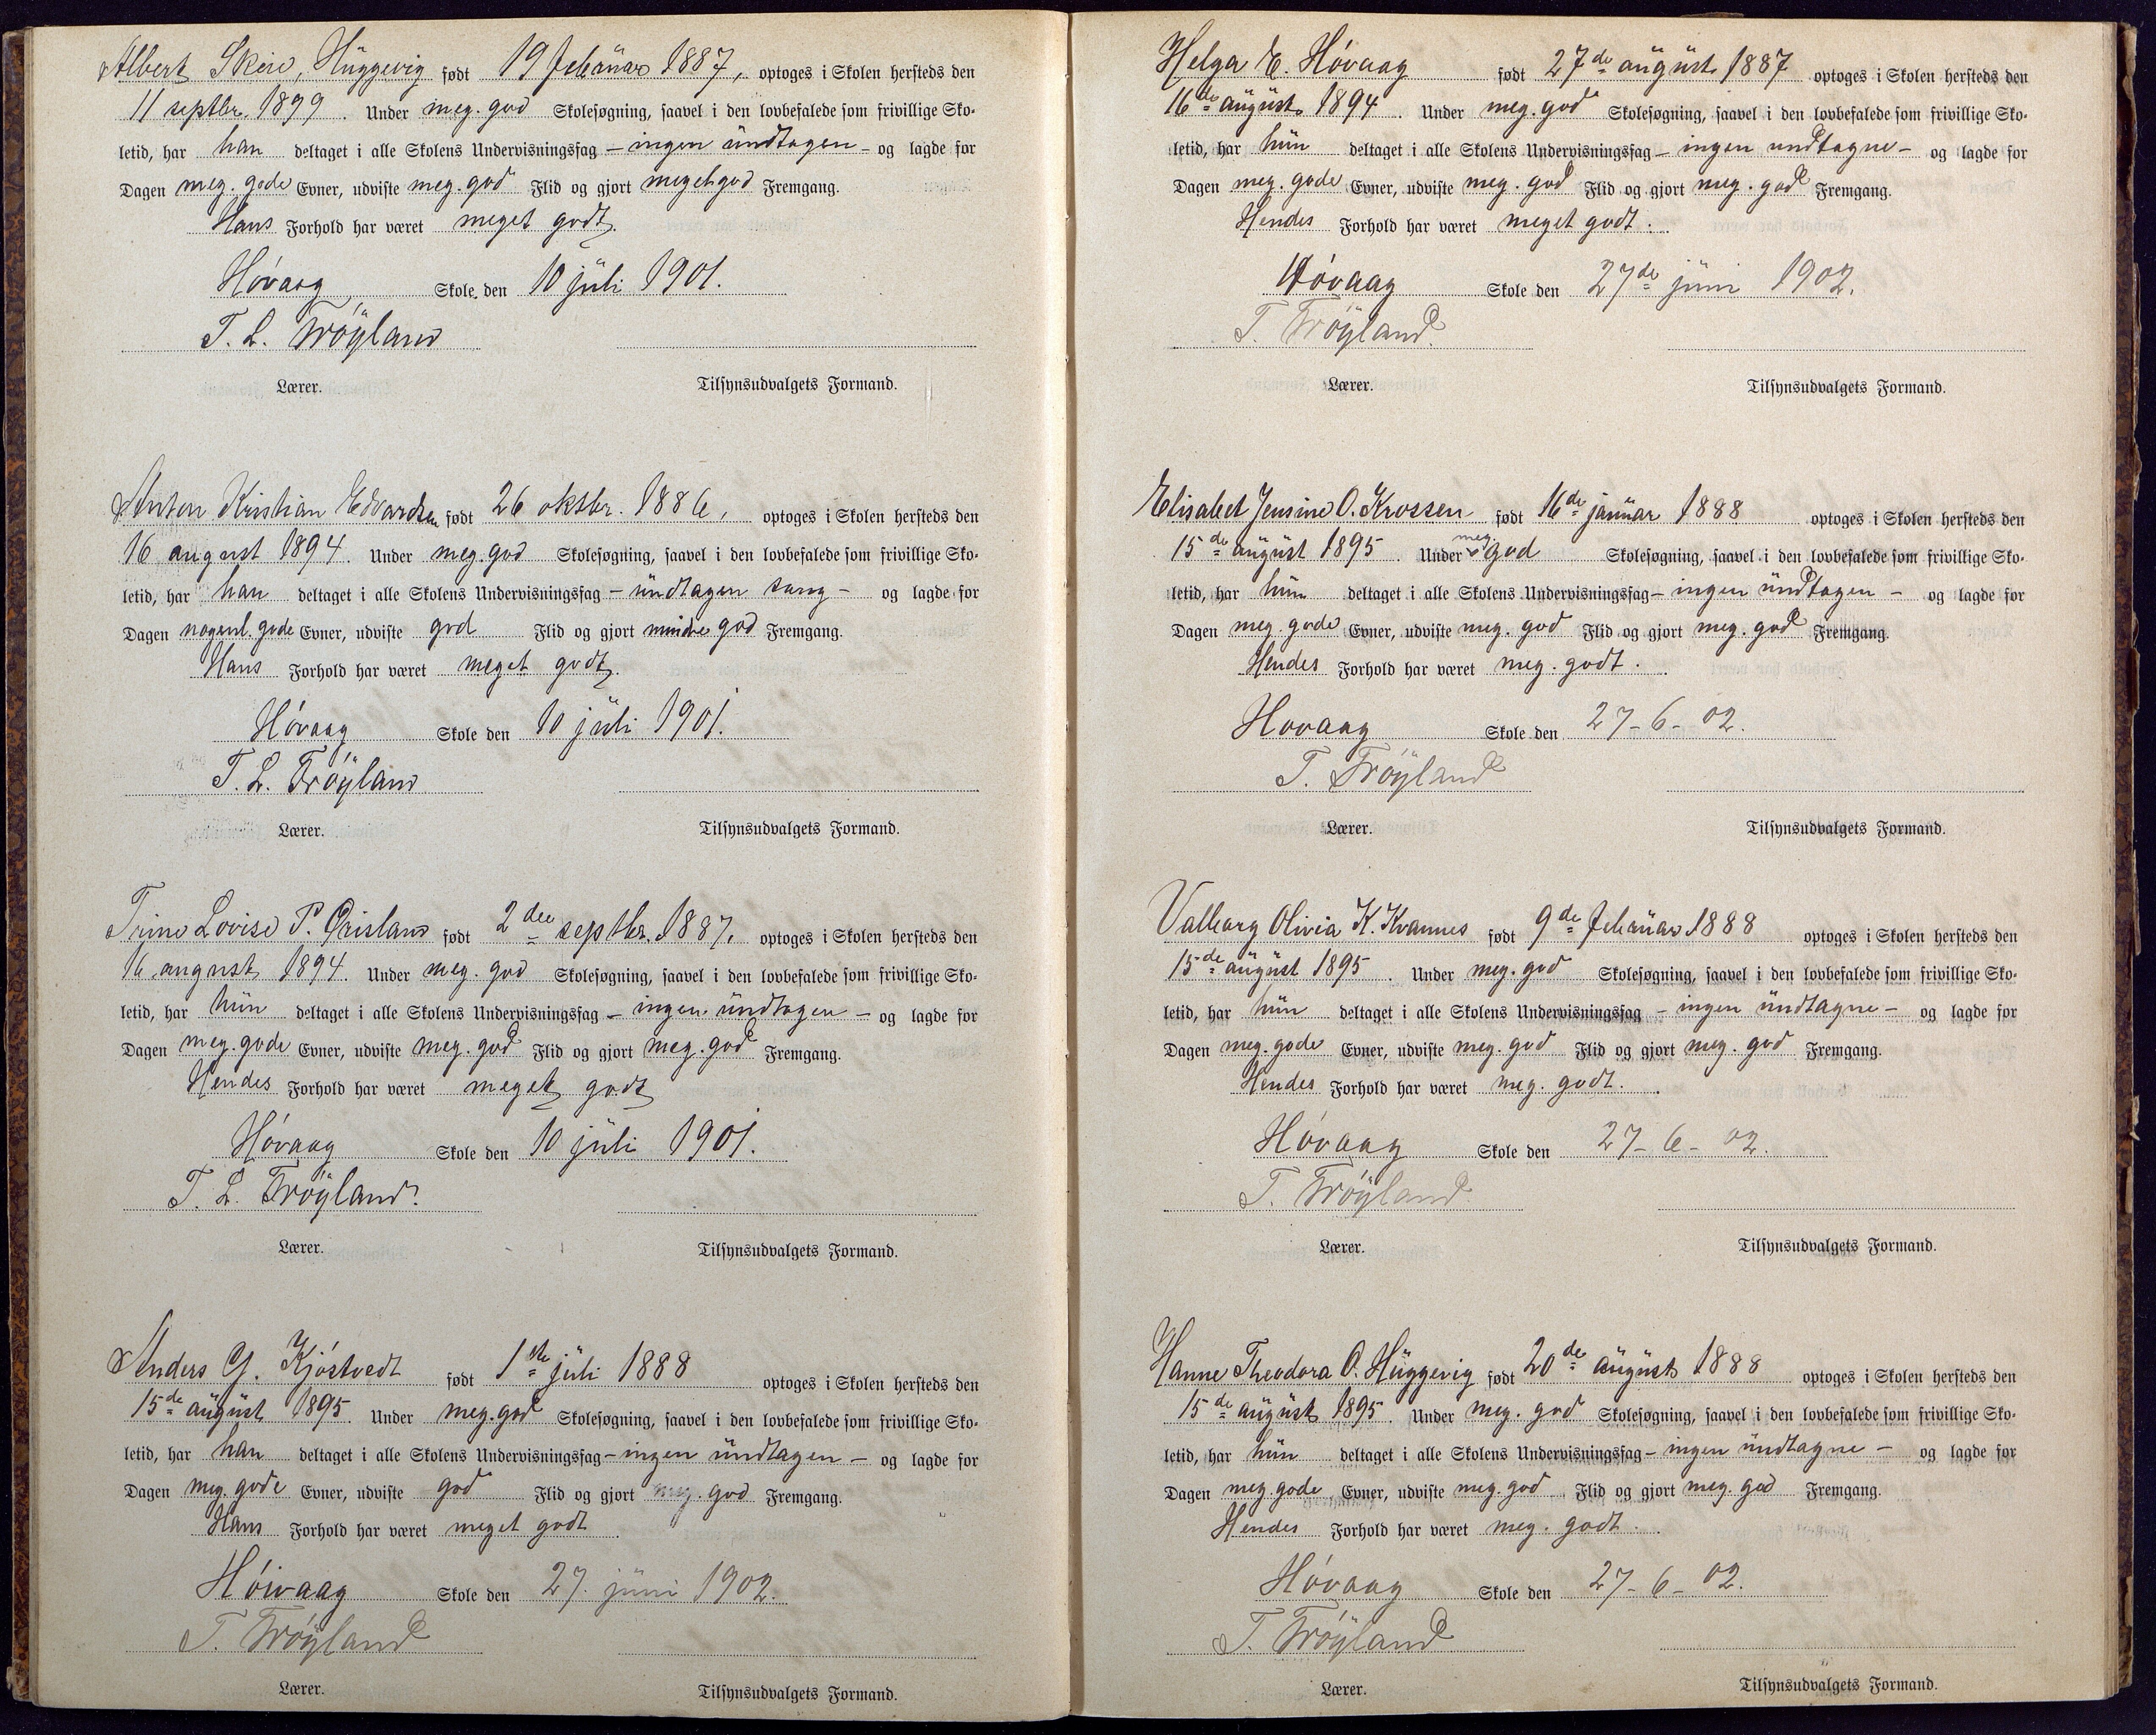 Albert Skeie, Hüggevig født 19 februar 1887, optoges i Skolen hersteds den
11 septbr. 1899. Under meg. god Skolesøgning, saavel i den lovbefalede som frivillige Sko-
letid, har han deltaget i alle Skolens Undervisningsfag – ingen ündtagen – og lagde for
Dagen meg. gode Evner, udviste meg. god Flid og gjort meget god Fremgang.
Hans Forhold har været meget godt.
Hóvaag Skole den 10 jüli 1901.
T. L. Tröyland
Lærer. Tilsynsudvalgets Formand.
Anton Kristian Edvardsen født 26 oktbr. 1886, optoges i Skolen hersteds den
16 august 1894. Under meg. god Skolesøgning, saavel i den lovbefalede som frivillige Sko-
letid, har han deltaget i alle Skolens Undervisningsfag – ündtagen sang – og lagde for
Dagen nogenl. gode Evner, udviste god Flid og gjort mindre god Fremgang.
Hans Forhold har været meget godt.
Hóvaag Skole den 10 jüli 1901.
T. L. Tröyland
Lærer. Tilsynsudvalgets Formand.
Trine Lovise P. født 2den septbr. 1887, optoges i Skolen hersteds den
16 august 1894. Under meg. god Skolesøgning, saavel i den lovbefalede som frivillige Sko-
letid, har hün deltaget i alle Skolens Undervisningsfag – ingen ündtagen – og lagde for
Dagen meg. gode Evner, udviste meg. god Flid og gjort meg. god Fremgang.
Hendes Forhold har været meget godt
Hóvaag Skole den 10 jüli 1901.
T. L. Tröyland.
Lærer. Tilsynsudvalgets Formand.
Anders G. Kjóstvedt født 1ste jüli 1888 optoges i Skolen hersteds den
15de aügüst 1895. Under meg. god Skolesøgning, saavel i den lovbefalede som frivillige Sko-
letid, har han deltaget i alle Skolens Undervisningsfag – ingen ündtagen – og lagde for
Dagen meg. gode Evner, udviste god Flid og gjort meg. god Fremgang.
Hans Forhold har været meget godt
Hóivaag Skole den 27. jüni 1902.
T. Tröyland
Lærer. Tilsynsudvalgets Formand.
Helga E. Hóvaag født 27de aügüst 1887 optoges i Skolen hersteds den
16de aügüst 1894. Under meg. god Skolesøgning, saavel i den lovbefalede som frivillige Sko-
letid, har hün deltaget i alle Skolens Undervisningsfag – ingen undtagne – og lagde for
Dagen meg. gode Evner, udviste meg. god Flid og gjort meg. god Fremgang.
Hendes Forhold har været meget godt.
Hóvaag Skole den 27de jüni 1902.
T. Tröyland.
Lærer. Tilsynsudvalgets Formand.
Elisabet Jensine O. Krossen født 16de janüar 1888 optoges i Skolen hersteds den
15de aügüst 1895. Under meg. god Skolesøgning, saavel i den lovbefalede som frivillige Sko-
letid, har hün deltaget i alle Skolens Undervisningsfag – ingen ündtagen – og lagde for
Dagen meg. gode Evner, udviste meg. god Flid og gjort meg. god Fremgang.
Hendes Forhold har været meg. godt.
Hovaag Skole den 27-6-02.
T. Tröyland
Lærer. Tilsynsudvalgets Formand.
Valborg Olivia K. Kvannes født 9de februar 1888 optoges i Skolen hersteds den
15de aügüst 1895. Under meg. god Skolesøgning, saavel i den lovbefalede som frivillige Sko-
letid, har hün deltaget i alle Skolens Undervisningsfag – ingen ündtagne – og lagde for
Dagen meg. gode Evner, udviste meg. god Flid og gjort meg. god Fremgang.
Hendes Forhold har været meg. godt.
Hóvaag Skole den 27-6-02.
T. Tröyland
Lærer. Tilsynsudvalgets Formand.
Hanne Theodora O. Hüggevig født 20de aügüst 1888 optoges i Skolen hersteds den
15de aügüst 1895. Under meg. god Skolesøgning, saavel i den lovbefalede som frivillige Sko-
letid, har hün deltaget i alle Skolens Undervisningsfag – ingen ündtagne – og lagde for
Dagen meg. gode Evner, udviste meg. god Flid og gjort meg. god Fremgang.
Hendes Forhold har været meg. godt.
Hóvaag Skole den 27-6-02.
T. Tröyland
Lærer. Tilsynsudvalgets Formand.